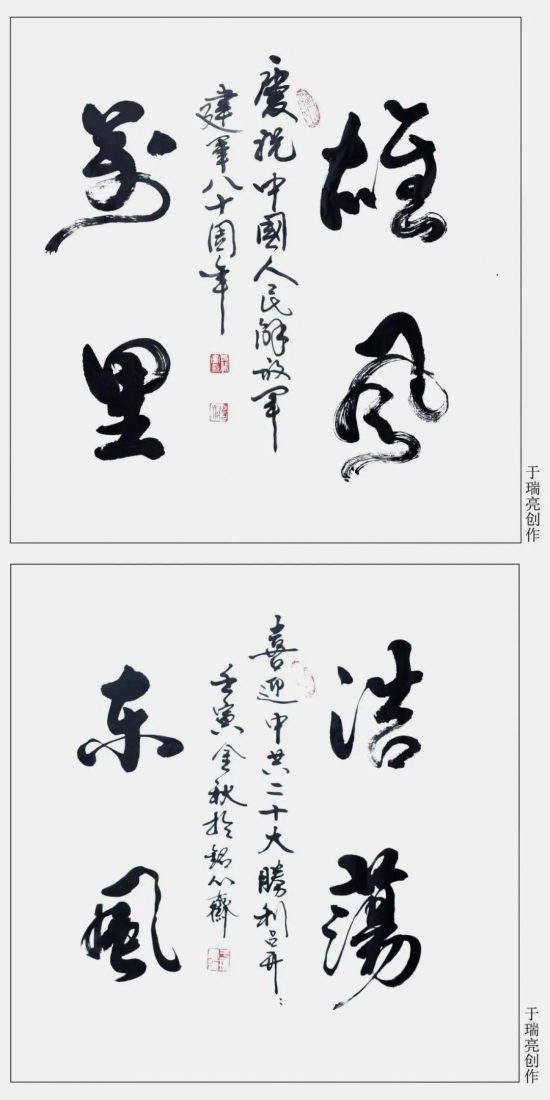 雄风
慶祝中國人民解放军
建军八十周年
萬里
于瑞亮创作
浩蕩
喜迎中共二十大勝利召开
壬寅金秋於銘心齋
东風
于瑞亮创作